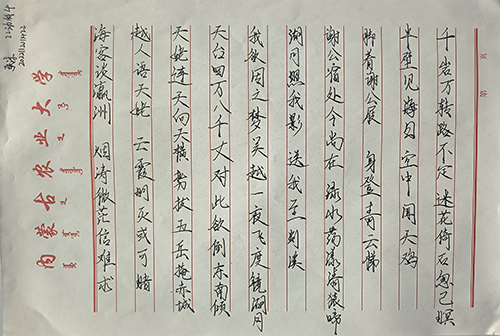 内蒙古农业大学
海客谈瀛洲 烟涛微茫信难求
越人语天姥 云霞明灭或可睹
天姥连天向天横 势拔五岳掩赤城
天台四万八千丈 对此欲倒东南倾
我欲因之梦吴越 一夜飞度镜湖月
湖月照我影 送我至剡溪
谢公宿处今尚在 绿水荡漾清猿啼
脚着谢公屐 身登青云梯
半壁见海日 空中闻天鸡
千岩万转路不定 迷花倚石忽已暝
第 页